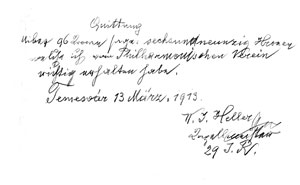 Quittung
über 96 Kronen sage: sechsundneunzig Kronen
welche ich vom Philharmonischen Verein
richtig erhalten habe.
Temesvár 13 März, 1913.
W. J. Heller
29 I. R.